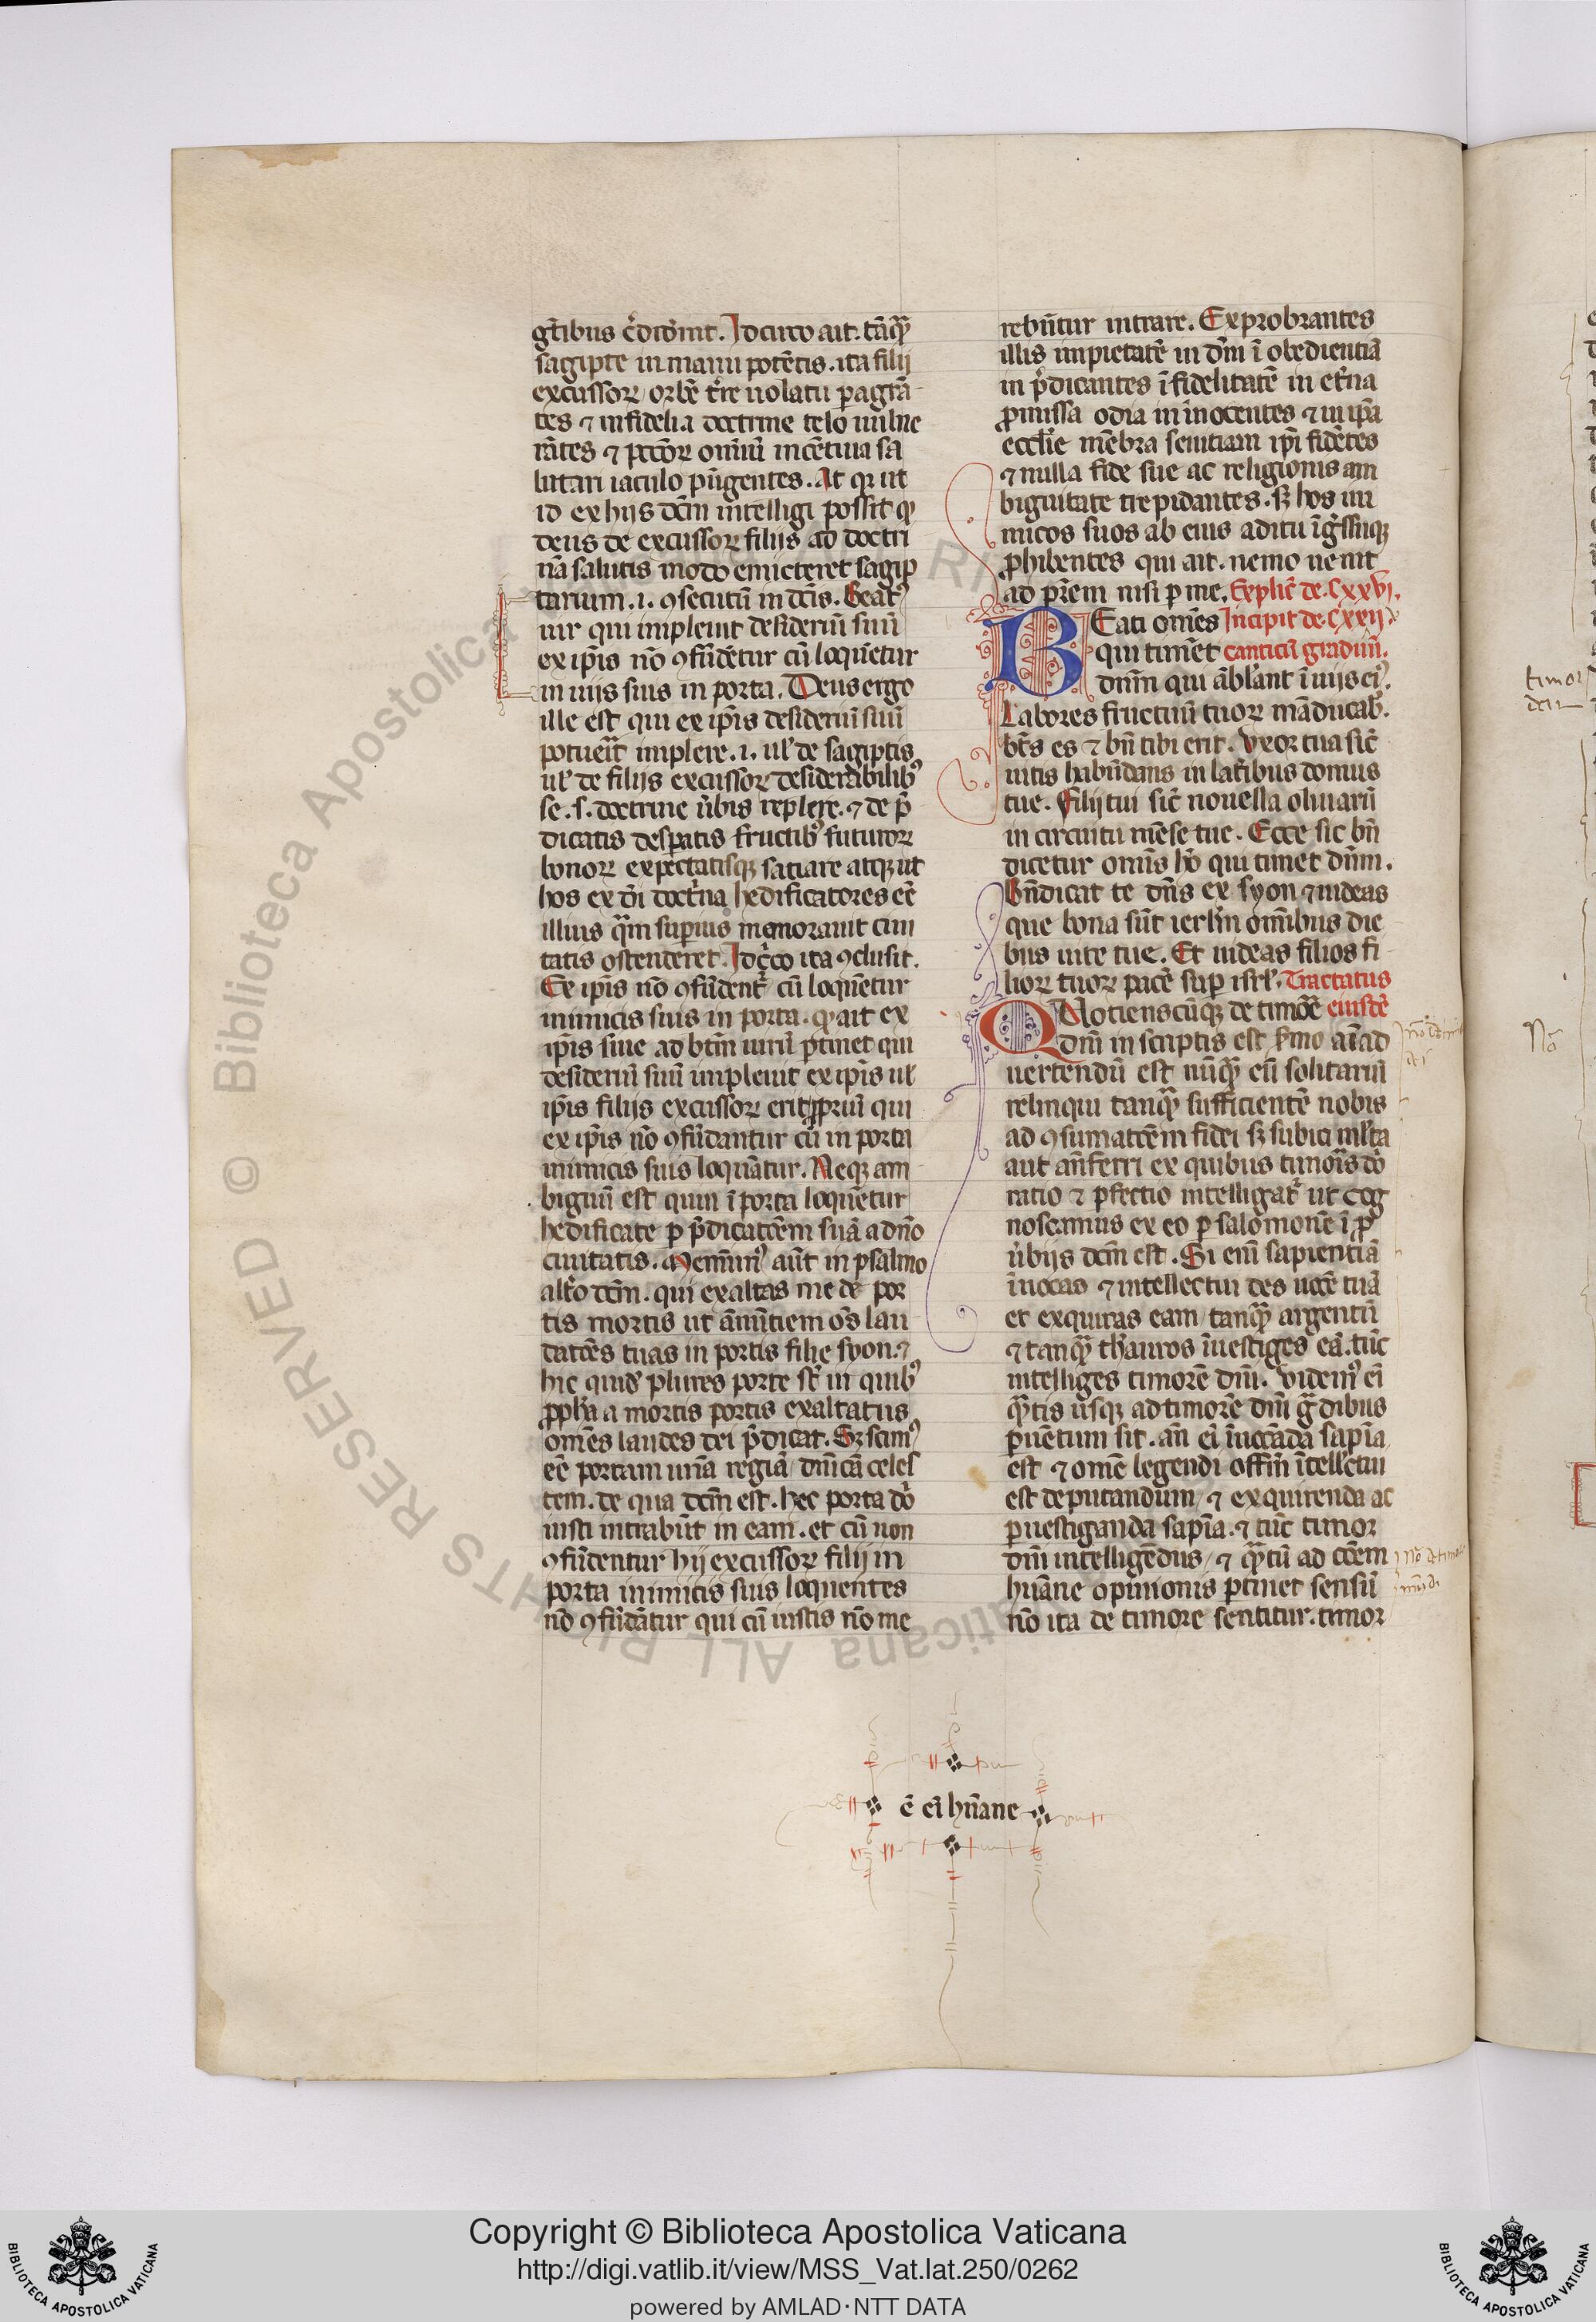 gētibus c̄diderint. Idcirco ait. tāqᵃ
sagipte in manu potētis. ita filij
excussoꝝ orbē tr̄re uolatu ꝑagrā
tes ⁊ infidelia doctrine telo uulne
rātes ⁊ pctōꝝ omīuꝫ incētiua sa
lutari iaculo pūgentes. At qꝛ ut
id ex hijs dcm̄ intelligi possit qͦ
deus de excussoꝝ filijs ad doctri
nā salutis modo emicteret sagip
tarium .i. ꝯsecutū in dcīs. Beatꝰ
uir qui impleuit desideriū suū
ex ip̄is nō ꝯfūdētur cū loquētur
in uijs suis in porta. Deus ergo
ille est qui ex ip̄is desideriū suū
potuerit implere .i. ul̓ de sagiptis
ul̓ de filijs excussoꝝ desiderabilibꝰ
se .s. doctrine ūbis replere. ⁊ de p̄
dicatis desꝑatis fructibꝰ futuroꝝ
bonoꝝ expectatisqꝫ satiare atqꝫ ut
hos ex dei doctⁱna hedificatores eē
illius qᵃm suꝑius memorauit ciui
tatis ostenderet. Idcͥco ita ꝯclusit.
Ex ip̄is nō ꝯfūdentᷣ cū loquētur
inimicis suis in porta. qͦ ait ex
ip̄is siue ad btm̄ uirū ꝑtinet qui
desideriū suū impleuit ex ip̄is ul̓
ip̄is filijs excussoꝝ erit ꝓpriū qui
ex ip̄is nō ꝯfūdantur cū in porta
inimicis suis loquātur. Neqꝫ am
biguū est quin ī porta loquētur
hedificate ꝑ p̄dicatōem suā a dn̄o
ciuitatis. Meminimꝰ aūt in psalmo
altͦo dcm̄. qui exaltas me de por
tis mortis ut ānūtiem oēs lau
datōes tuas in portis filie syon. ⁊
hic quidē plures porte st̄ in quibꝰ
ꝓpha a mortis portis exaltatus
omēs laudes dei p̄dicat. Sꝫ scimꝰ
eē portam unā regiā dnīcā celes
tem. de qua dcm̄ est. hec porta dō
iusti intrabūt in eam. et cū non
ꝯfūdentur hij excussoꝝ filij in
porta inimicis suis loquentes
nō ꝯfūdātur qui cū iustis nō me
rebūtur intrare. Exprobrantes
illis impietatē in dm̄ ī obedientiā
in p̄dicantes īfidelitatē in et̄na
ꝓmissa odia in īnocentes ⁊ in ip̄a
eccl̓ie mēbra seuitiam ip̄i fidētes
⁊ nulla fide sue ac religionis am
biguitate trepidantes. sꝫ hos ini
micos suos ab eius aditu īgressuqꝫ
ꝓhibentes qui ait. nemo uenit
ad pr̄em nisi ꝑ me. Explic̄ de. Cxxvi.
BEati omēs Incipit de. Cxxvij
qui timēt canticū graduū.
dnm̄ qui ābl̓ant ī uijs eiꝰ.
Labores fructuū tuoꝝ māducabꝰ.
bt̄s es ⁊ bn̄ tibi erit. Vxor tua sic̄
uitis habūdans in latībus domus
tue. Filij tui sic̄ nouella oliuarū
in circuitu mēse tue. Ecce sic bn̄
dicetur omīs hō qui timet dn̄m.
Bn̄dicat te dn̄s ex syon ⁊ uideas
que bona sūt ierl̓m omībus die
bus uite tue. Et uideas filios fi
lioꝝ tuoꝝ pacē suꝑ isrl̓. Tractatus
QVotienscūqꝫ de timōe eiusdē
dn̄i in scriptis est ẜmo aīad
uertendū est nūqᵃ eū solitariū
relinqui tanqᵃ sufficientē nobis
ad ꝯsumatōem fidei sꝫ subici ml̓ta
aut anferri ex quibus timoris dō
ratio ⁊ ꝑfectio intelligatᷣ ut cog
noscamus ex eo ꝑ salomonē ī ꝓ
ūbijs dcm̄ est. Si enī sapientiā
īuocas ⁊ intellectui des uocē tuā
et exquiras eam tanqᵃ argentū
⁊ tanqᵃ thauros īuestiges eā. tūc
intelliges timorē dn̄i. Videmꝰ eī
qᵃtis usqꝫ ad timorē dn̄i gᵃdibus
ꝑuētum sit. an̄ eī īuocāda sapīa
est ⁊ omē legendi offm̄ ītell̓ctui
est deputandum ⁊ exquirenda ac
ꝑuestiganda sapīa. ⁊ tūc timor
dn̄i intelligēdus ⁊ qᵃtū ad cōem
hūane opinionis ꝑtinet sensū
nō ita de timore sentitur. timor
ē eī hūane
timor
Nō